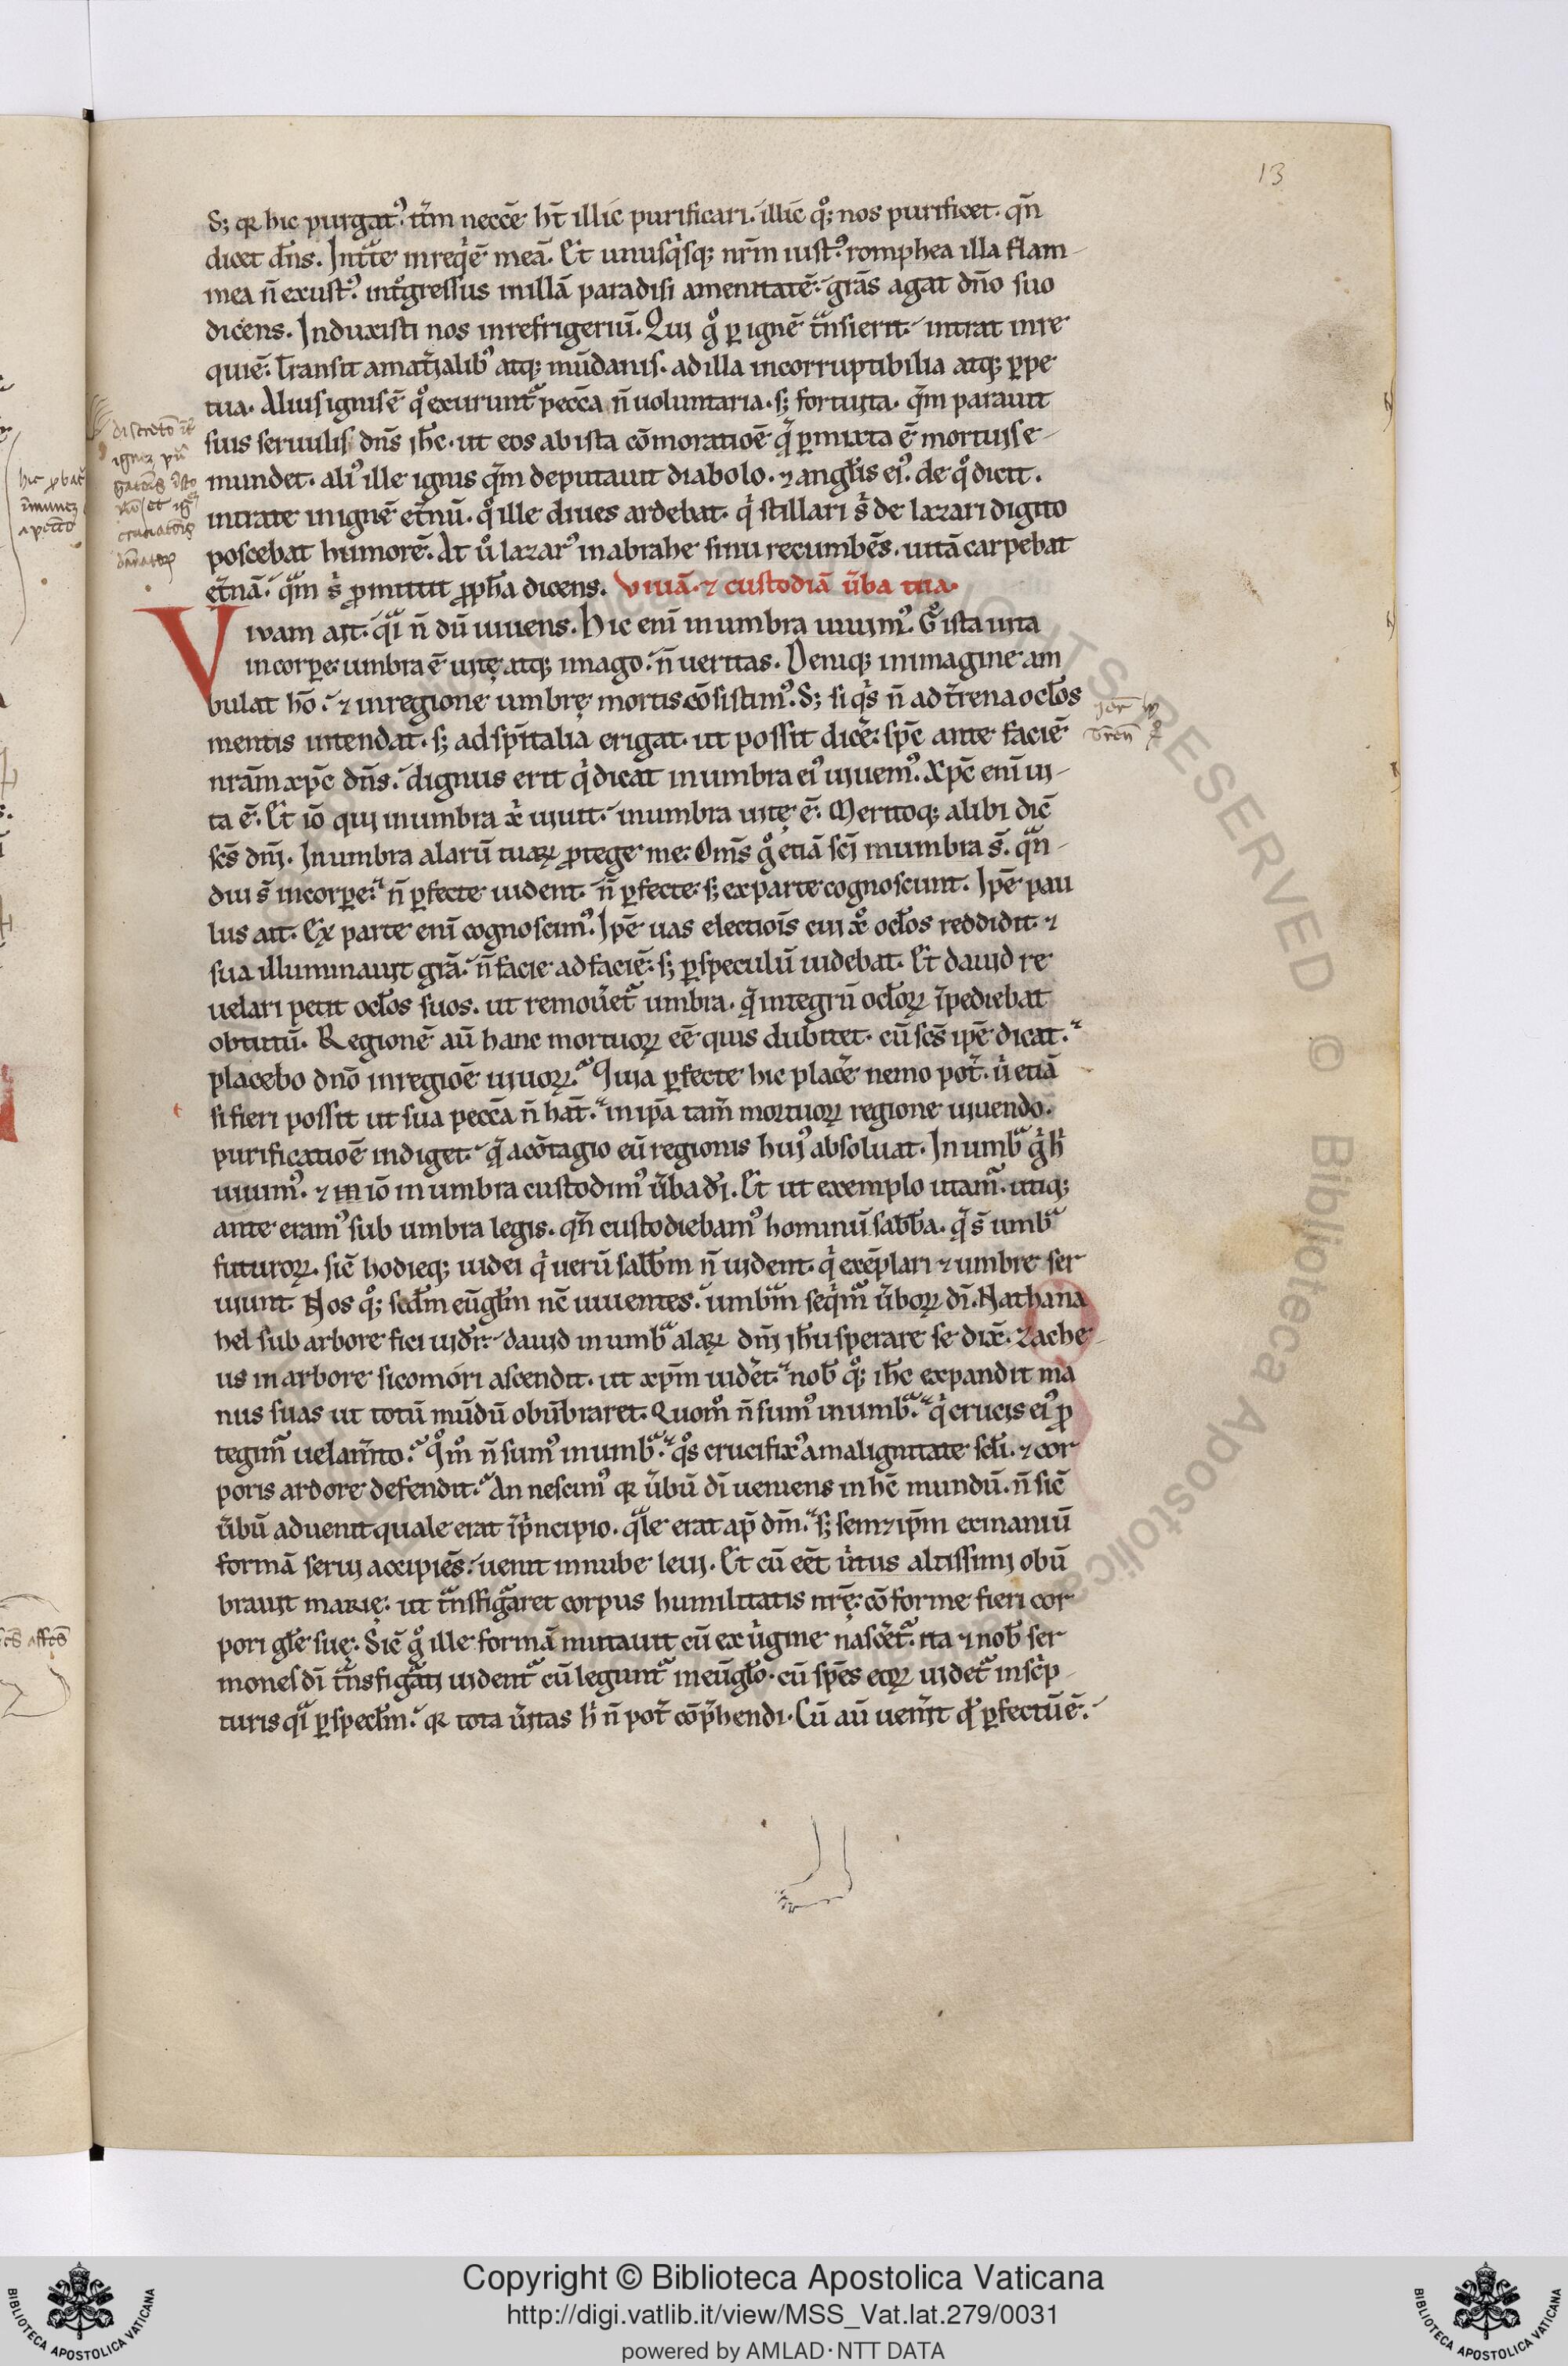 13
S; qꝛ hic purgatꝰ. itm̄ neccē ht̄ illic purificari. illic qͦ; nos purificet. qn̄
dicet dn̄s. Intͣte inreqͥē meā. Et unusqͥsq; nr̄m iustꝰ romphea illa flam-
mea n̄ exustꝰ. intͦgressus inillā paradisi amenitatē. grās agat dn̄o suo
dicens. Induxisti nos inrefrigeriū. Qui gͦ ꝑ ignē tͣnsierit. intrat inre
quiē. Transit amat̄ialibꝰ atq; mūdanis. ad illa incorruptibilia atq; ꝑpe
tua. Alius ignis ē qͦ exuruntͣ peccā n̄ uoluntaria. s; fortuita. qͣm parauit
suis seruulis dn̄s ih̄c. ut eos ab ista cōmoratioē q̄ ꝑmixta ē mortuis e-
mundet. aliꝰ ille ignis qͣm deputauit diabolo. ⁊ angłis eiꝰ. de qͦ dicit.
intrate in ignē et̄nū. qͦ ille diues ardebat. qͥ stillari sͥ de lazari digito
poscebat humorē. At uͦ lazarꝰ in abrahe sinu recumbēs. uitā carpebat
et̄nā. qͣm sͥ ꝓmittit ꝓph̄a dicens. Viuā. ⁊ custodiā ūba tua.
Vivam ait. qͣi n̄ dū uiuens. Hic enī in umbra uiuimꝰ. Gͦ ista uita
in corꝑe umbra ē uitę atq; imago. n̄ ueritas. Deniq; in imagine am
bulat hō. ⁊ in regione umbrę mortis cōsistimꝰ. S; si qͥs n̄ ad t̄rena ocłos
mentis intendat. s; ad sp̄italia erigat. ut possit dicē. sp̄c ante faciē
nrām xp̄c dn̄s. dignus erit qͥ dicat in umbra eiꝰ uiuemꝰ. Xp̄c enī ui-
ta ē. Et iō qui in umbra xͥ uiuit. in umbra uitę ē. Meritoq; alibi dic̄
sc̄s dn̄i. In umbra alarū tuaꝝ ꝓtege me. Om̄s gͦ etiā sc̄i in umbra s̄. qͣn-
diu s̄ in corꝑe. n̄ ꝑfecte uident. n̄ ꝑfecte s; ex parte cognoscunt. Ip̄e pau
lus ait. Ex parte enī cognoscimꝰ. Ip̄e uas electiōis cui xͦ ocłos reddidit. ⁊
sua illuminauit grā. n̄ facie ad faciē. s; ꝑ speculū uidebat. Et dauid re
uelari petit ocłos suos. ut remoūetͣ umbra. q̄ integrū ocłoꝝ īpediebat
obtutū. Regionē aū hanc mortuoꝝ eē quis dubitet. cū sc̄s ip̄e dicat.
placebo dn̄o in regiōe uiuoꝝ. Quia ꝑfecte hic placē nemo pot̄. uͥ etiā
si fieri possit ut sua peccā n̄ hāt. in ip̄a tam̄ mortuoꝝ regione uiuendo.
purificatioē indiget. q̄ acōtagio eū regionis huiꝰ absoluat. In umbͣ gͦ hͥ
uiuimꝰ. ⁊ in iō in umbra custodimꝰ ūba dī. Et ut exemplo utam̄. utiq;
ante eramꝰ sub umbra legis. qn̄ custodiebamꝰ hominū sabb̄a. q̄ s̄ umbͣ
futuroꝝ. sic̄ hodieq; iudei qͥ uerū sabb̄m n̄ uident. qͥ exēplari ⁊ umbre ser
uiunt. Nos qͦ; scd̄m eūgłm nc̄ uiuentes. umbͣm seqͥmͣ ūboꝝ dī. Nathana
hel sub arbore fici uidr̄. dauid in umbͣ alaꝝ dn̄i ih̄u sperare se dix̄. Zache-
us in arbore sicomóri ascendit. ut xp̄m uidēt. nob̄ qͦ; ih̄c expandit ma
nus suas ut totū mūdū obūbraret. Quomͦ n̄ sumꝰ in umbͣ. qͥ crucis eiꝰ ꝓ
tegimͣ uelam̄to. Qͦmͦ n̄ sumꝰ in umbͣ. qͦs crucifixꝰ amalignitate scłi. ⁊ cor
poris ardore defendit. An nescimꝰ qꝛ ūbū dī ueniens in hc̄ mundū. n̄ sic̄
ūbū aduenit quale erat īpͥncipio. qͣle erat ap̄ dm̄. s; sem⁊ip̄m exinaniū
formā serui accipiēs. uenit in nube leui. Et cū eēt uͥtus altissimi obū
brauit marię. ut tͣnsfigͣaret corpus humilitatis nrę̄. cōforme fieri cor
pori głe suę. Sic̄ gͦ ille formā mutauit cū ex uͥgine nascēt.ͣ ita ⁊ nob̄ ser
mones dī tͣnsfigͣati uidentͣ cū leguntͣ in eūgło. cū sp̄es eoꝝ uidetͣ in scͥp-
turis qͣi ꝑ specłm. qꝛ tota uͥitas hͥ n̄ pot̄ cōp̄hendi. Cū aū uen̄it qͦ ꝑfectū ē.
Copyright © Biblioteca Apostolica Vaticana
http://digi.vatlib.it/view/MSS_Vat.lat.279/0031
powered by AMLAD·NTT DATA
BIBLIOTECA APOSTOLICA VATICANA
BIBLIOTECA APOSTOLICA VATICANA